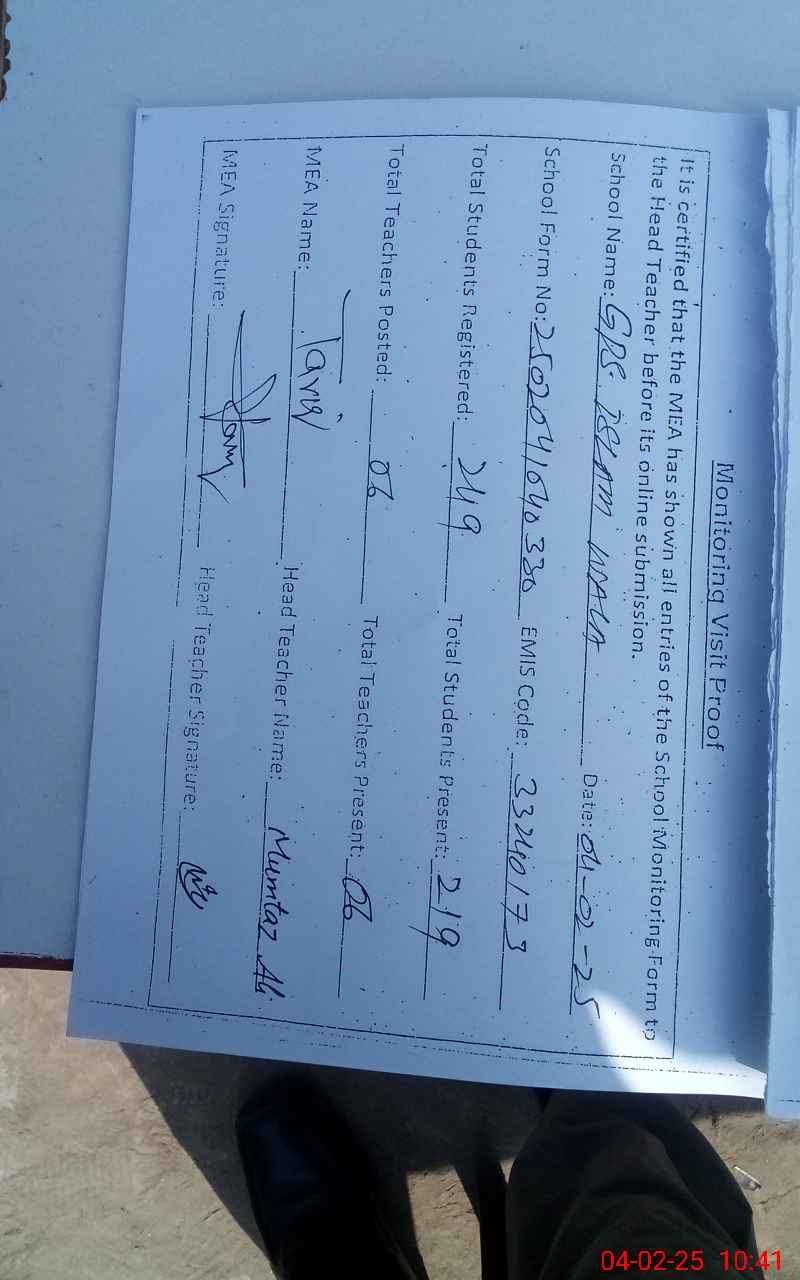 Monitoring Visit Proof
It is certified that the MEA has shown all entries of the School Monitoring Form to
the Head Teacher before its online submission.
School Name: GPS. ISLAM WALA Date: 04-02-25
School Form No: 2502041640330 EMIS Code: 33240173
Total Students Registered: 249 Total Students Present: 219
Total Teachers Posted: 06 Total Teachers Present: 06
MEA Name: Tariq Head Teacher Name: Mumtaz Ali
MEA Signature: Head Teacher Signature:
04-02-25 10:41